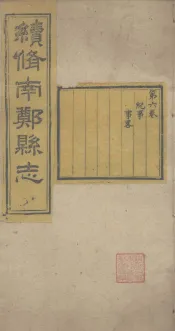 續修南鄭縣志
第六卷
紀事